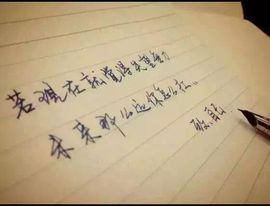 若现在就觉得失望无力
未来那么远你怎么扛